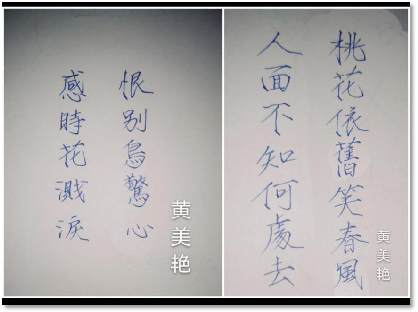 感時花濺淚
恨别鳥驚心
黄美艳
人面不知何處去
桃花依舊笑春風
黄美艳